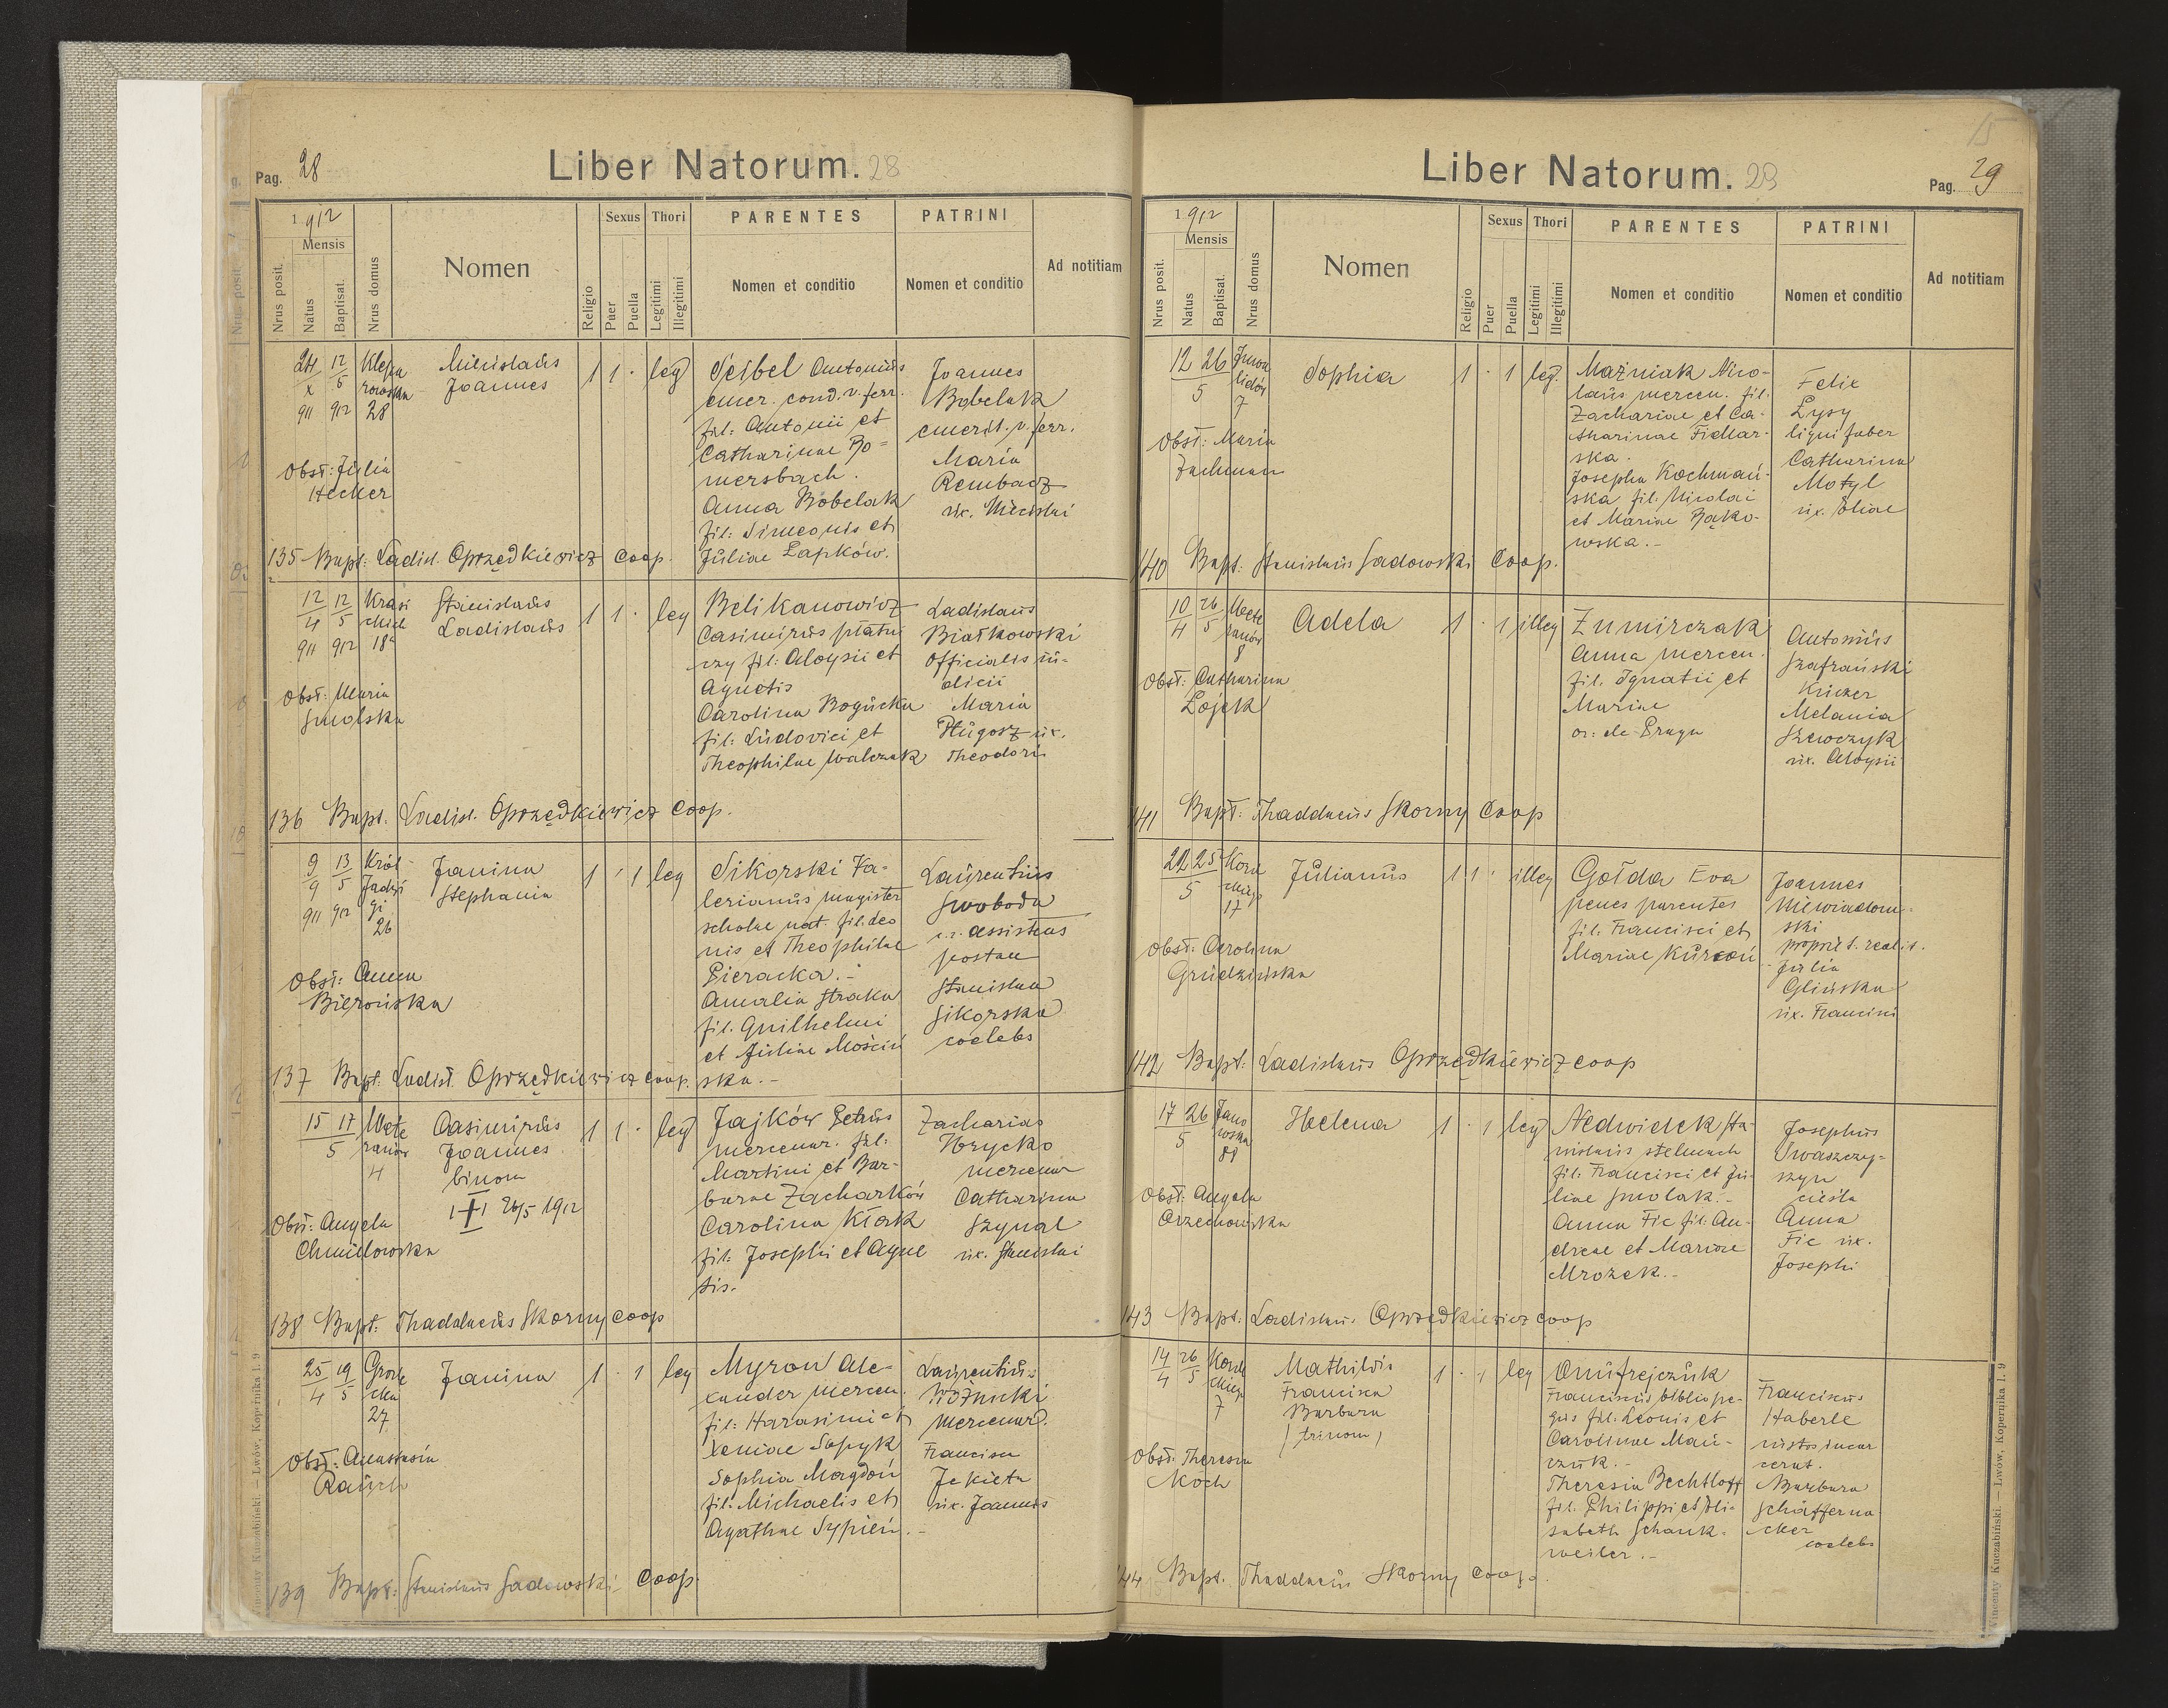 Pag. 28
Liber Natorum. 28
1912
Mensis
Nrus posit.
Natus
Baptisat.
Nrus domus
Nomen
Religio
Sexus
Puer
Puella
Thori
Legitimi
Illegitimi
PARENTES
Nomen et conditio
PATRINI
Nomen et conditio
Ad notitiam
24/X 911
12/5 912
Klepa
rowska
28
Miecislaus
Joannes
1 1 · leg
Seibel Antonius
emer. cond. v. ferr.
fil: Antonii et
Catharinae Ro=
mersbach.
Anna Bobelak
fil: Simeonis et
Juliae Łapków.
Joannes
Bobelak
emerit. v. ferr.
Maria
Rembacz
ux. Miecislai
Obst: Julia
Hecker
135 Bapt: Ladisl. Oprzędkiewicz Coop.
12/4 911
12/5 912
Krasi
ckich
18a
Stanislaus
Ladislaus
1 1 · leg
Belikanowicz
Casimirus płatni
czy fil: Aloysii et
Agnetis
Carolina Bogucka
fil: Ludovici et
Theophilae Walczak
Ladislaus
Białkowski
Officialis iu-
dicii
Maria
Długosz ux.
Theodori
Obst: Maria
Smolska
136 Bapt. Ladisl. Oprzędkiewicz Coop.
9/9 911
13/5 912
Król
Jadwi
gi
26
Janina
Stephania
1 · 1 leg
Sikorski Va-
lerianus magister
scholae nat. fil. Leo
nis et Theophilae
Pieracka.-
Amalia Straka
fil. Guilhelmi
et Juliae Mościń
ska.-
Laurentius
Swoboda
c.r. assistens
postae
Stanislava
Sikorska
coelebs
Obst: Anna
Bierońska
137 Bapt: Ladisl. Oprzędkiewicz coop.
15 17
5
Wete
ranów
4
Casimirus
Joannes
binom
† 26/5 1912
1 1 · leg
Jajków Petrus
mercenar. fil:
Martini et Bar-
barae Zacharków
Carolina Kłak
fil: Josephi et Agne
tis.
Zacharias
Hrycko
mercenar
Catharina
Szynal
ux. Stanislai
Obst: Angela
Chmielowska
138 Bapt: Thaddaeus Skorny coop
25/4
19/5
Grode
cka
27
Janina
1 · 1 leg
Myron Ale-
xander mercen.
fil: Harasimi et
Xeniae Sapyk
Sophia Magdoń
fil: Michaelis et
Agathae Sypień.-
Laurentius
Woźnicki
mercenar.
Francisca
Jekieta
ux. Joannis
Obst: Anastasia
Rausch
139 Bapt: Stanislaus Sadowski Coop.
Vincenty Kuczabiński. — Lwów, Kopernika l. 9
Liber Natorum. 29
15
Pag. 29
1912
Mensis
Nrus posit.
Natus
Baptisat.
Nrus domus
Nomen
Religio
Sexus
Puer
Puella
Thori
Legitimi
Illegitimi
PARENTES
Nomen et conditio
PATRINI
Nomen et conditio
Ad notitiam
12 26
5
Inwa
lidów
7
Sophia
1 · 1 leg.
Maźniak Nico-
laus mercen. fil.
Zachariae et Ca-
tharinae Fidlar-
ska.
Josepha Kochmań-
ska fil. Nicolai
et Mariae Bąko-
wska.-
Felix
Łysy
ligni faber
Catharina
Motyl
ux. Eliae
Obst: Maria
Zachman
140 Bapt: Stanislaus Sadowski Coop.
10/4
26/5
Wete
ranów
8
Adela
1 · 1 illeg
Zumirczak
Anna mercen.
fil. Ignatii et
Mariae
or: de Praga
Antonius
Szafrański
Melania
Szewczyk
ux. Aloysii
Obst: Catharina
Łojek
141 Bapt: Thaddaeus Skorny Coop
22 25
5
Kord
ckiego
17
Julianus
1 1 · illeg
Gołda Eva
penes parentes
fil. Francisci et
Mariae Kurcoń
Joannes
Niewiadom-
ski
propriet. realit.
Julia
Glińska
ux. Francisci
Obst: Carolina
Grudzińska
142 Bapt: Ladislaus Oprzędkiewicz coop
17 26
5
Jano
wska
88
Helena
1 · 1 leg
Nedwidek Sta-
nislaus stelmach
fil: Francisci et Ju-
liae Smolak.-
Anna Fic fil: An-
dreae et Mariae
Mrozek.-
Josephus
Iwaszczy-
szyn
cieśla
Anna
Fic ux.
Josephi
Obst: Angela
Orzechowska
143 Bapt. Ladislaus Oprzędkiewicz coop
14/4
26/5
Kord
ckiego
7
Mathildis
Francisca
Barbara
(trinom)
1 · 1 leg
Onufrejczuk
Franciscus bibliope-
gus fil: Leonis et
Carolinae Mań-
czuk.-
Theresia Bechtloff
fil. Philippi et Eli-
sabeth Schank-
weiler.-
Franciscus
Haberle
custos incar
cerat.
Barbara
Schäfferna
cker
coelebs
Obst: Theresia
Koch
144 Bapt. Thaddaeus Skorny Coop.
Vincenty Kuczabiński. — Lwów, Kopernika l. 9